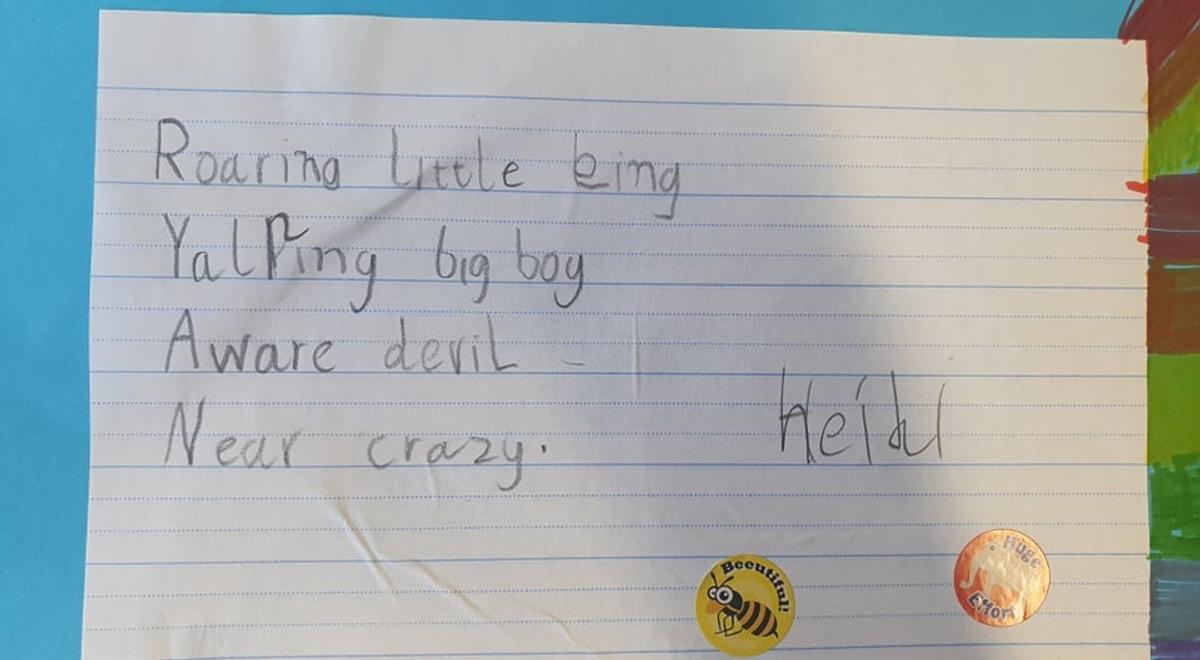 Roaring little king
Yalping big boy
Aware devil
Near crazy.
Heidi
Beeutiful!
Huge
Effort